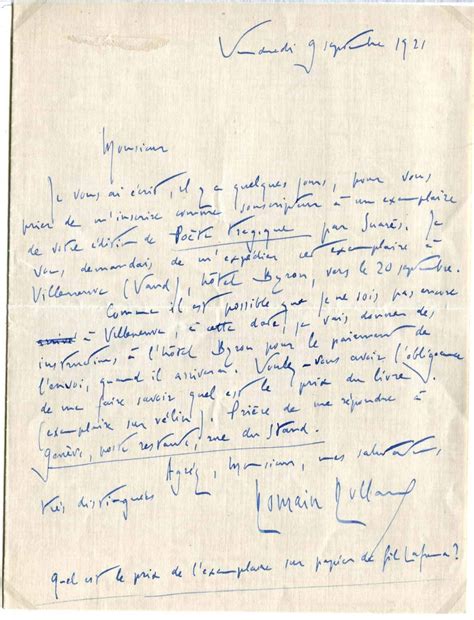 Vendredi 9 septembre 1921
Monsieur
Je vous ai écrit, il y a quelques jours, pour vous
prier de m'inscrire comme souscripteur à un exemplaire
de votre édition de Poète tragique par Suarès. Je
vous demandais de m'expédier cet exemplaire à
Villeneuve (Vaud), hôtel Byron, vers le 20 septembre.
Comme il est possible que je ne sois pas encore
arrivé à Villeneuve, à cette date, je vais donner des
instructions à l'hôtel Byron pour le paiement de
l'envoi, quand il arrivera. Voulez-vous avoir l'obligeance
de me faire savoir quel est le prix du livre
(exemplaire sur vélin). Prière de me répondre à
Genève, poste restante, rue du Stand.
Agréez, Monsieur, mes salutations
très distinguées
Romain Rolland
Quel est le prix de l'exemplaire sur papier de fil Lafuma?